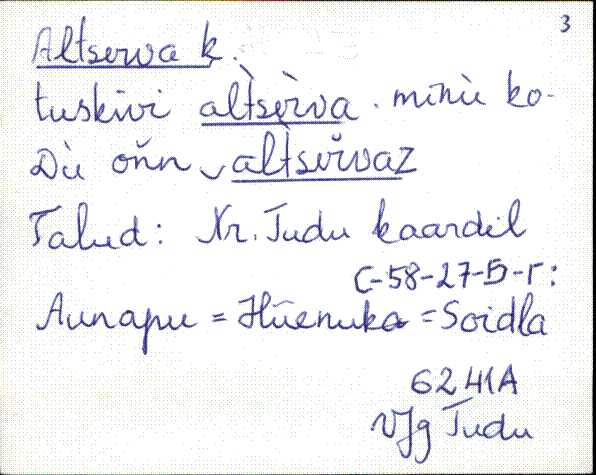 3
Altserva k.
tuskivi al̀tsèrva. minù ko-
Dù oňn ⌣al̀tser̆vaz
Talud: Nr. Tudu kaardil
C-58-27-Б-г:
Aunapu = Hūenuka = Soidla
6241A
VJg Tudu